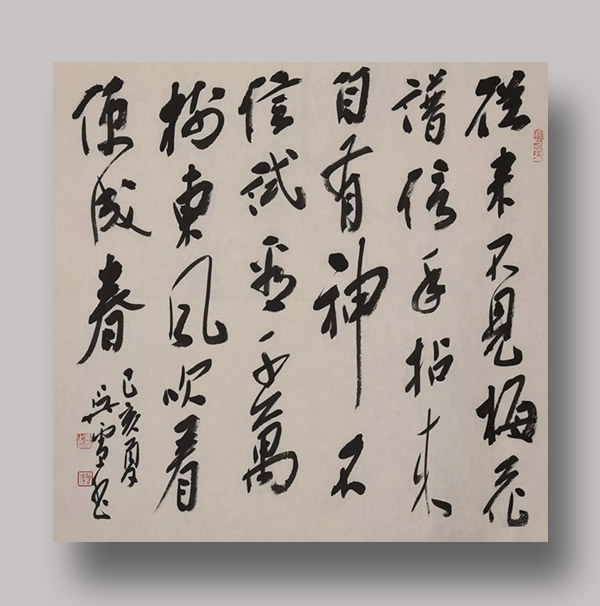 從来不見梅花
譜信手拈来
自有神不
信試看千萬
樹東風吹着
便成春
己亥夏
雪书